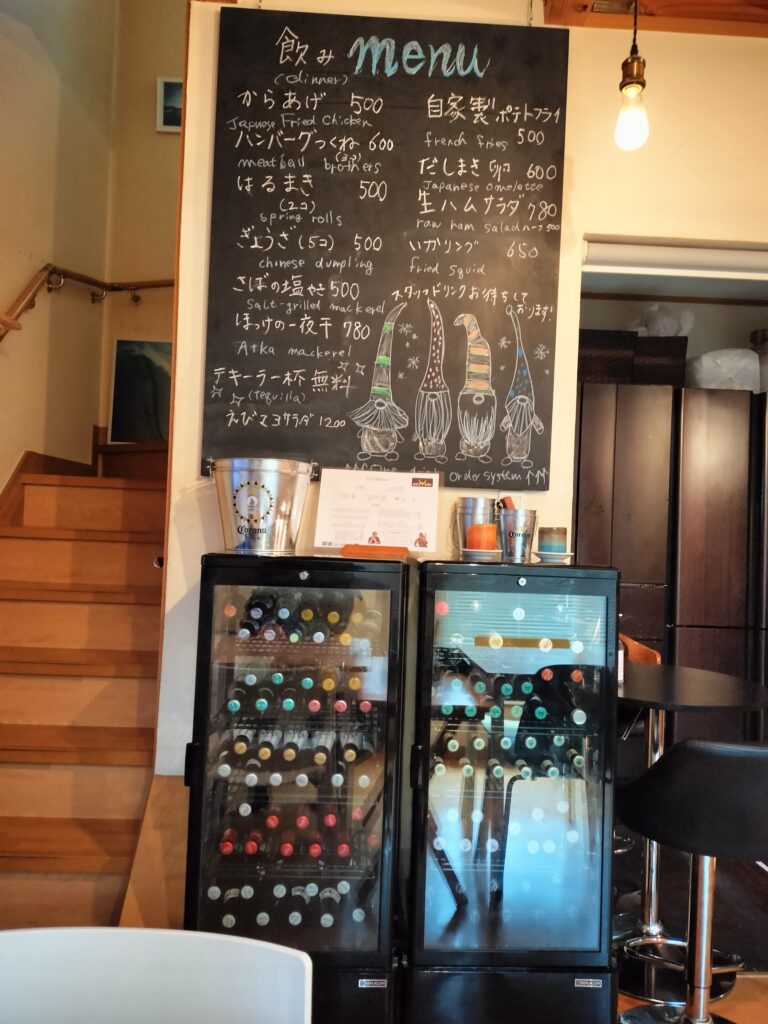 飲み menu
(dinner)
からあげ 500
Japnese Fried Chicken
ハンバーグつくね 600
(3コ)
meatball brothers
はるまき 500
(2コ)
spring rolls
ぎょうざ(5コ) 500
chinese dumpling
さばの塩やき 500
Salt-grilled mackerel
ほっけの一夜干 780
Atka mackerel
テキーラ一杯無料
(tequilla)
えびアヨサラダ 1200
自家製ポテトフライ
french fries 500
だしまき卵 600
Japanese omelette
生ハムサラダ 780
raw ham salad ハーフ500
いカリング 650
fried squid
スタッフドリンクお待ちして
おります!
order system ↑↑↑
Corona
Corona